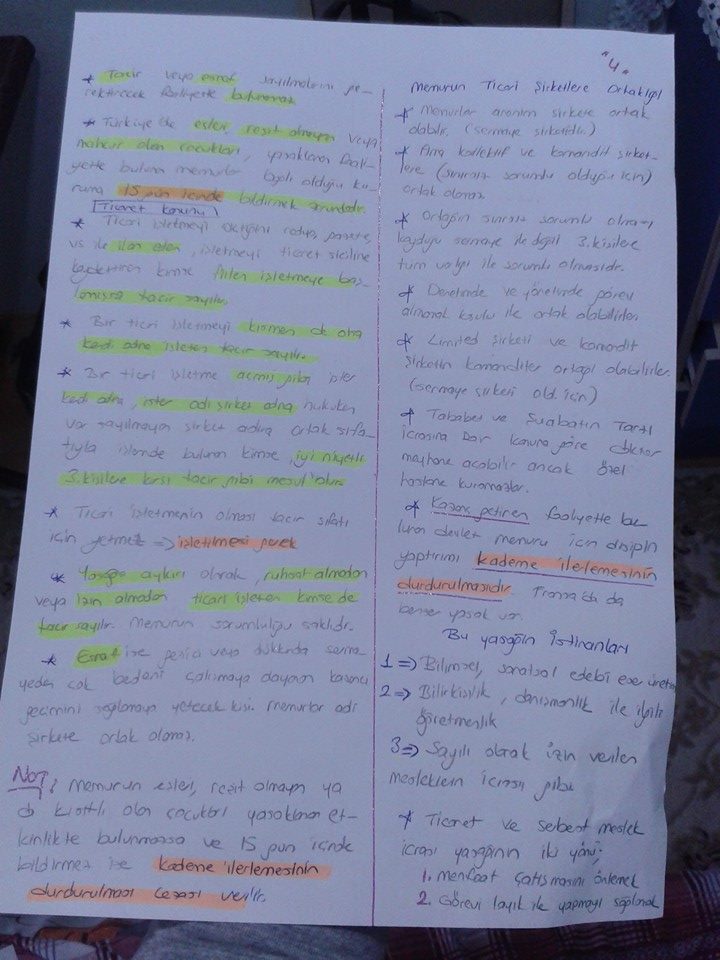 * Tacir veya esnaf sayılmalarını ge-
rektirecek faaliyette bulunamaz
* Türkiye'de eşleri, reşit olmayan veya
mahcur olan çocukları, yasaklanan faali-
yette bulunan memurlar bağlı olduğu ku-
ruma 15 gün içinde bildirmek zorundadır.
Ticaret kanunu
* Ticari işletmeyi açtığını radyo, gazete,
vs ile ilan eden, işletmeyi ticaret siciline
kaydettiren kimse fiilen işletmeye baş-
lamışsa tacir sayılır.
* Bir ticari işletmeyi kısmen de olsa
kendi adına işleten tacir sayılır.
* Bir ticari işletme açmış gibi ister
kendi adına, ister adi şirket adına hukuken
var sayılmayan şirket adına ortak sıfa-
tıyla işlemde bulunan kimse, iyi niyetli
3.kişilere karşı tacir gibi mesul olur.
* Ticari işletmenin olması tacir sıfatı
için yetmez => işletilmesi gerek
* Yasağa aykırı olarak, ruhsat almadan
veya izin almadan ticari işleten kimse de
tacir sayılır. Memurun sorumluluğu saklıdır.
* Esnaf ise gezici veya dükkanda serma-
yeden çok bedeni çalışmaya dayanan kazancı
geçimini sağlamaya yetecek kişi. Memurlar adi
şirkete ortak olamaz.
Not: Memurun eşleri, reşit olmayan ya
da kısıtlı olan çocukları yasaklanan et-
kinlikte bulunmassa ve 15 gün içinde
bildirmez ise kademe ilerlemesinin
durdurulması cezası verilir.
"4"
Memurun Ticari Şirketlere Ortaklığı
* Memurlar anonim şirkete ortak
olabilir. (sermaye şirketidir.)
* Ama kollektif ve komandit şirket-
lere (sınırsız sorumlu olduğu için)
ortak olamaz
* Ortağın sınırsız sorumlu olması,
koyduğu sermaye ile değil 3.kişilere
tüm varlığı ile sorumlu olmasıdır.
* Denetimde ve yönetimde görev
almamak koşulu ile ortak olabilirler
* Limited şirketi ve komandit
şirketin komanditer ortağı olabilirler.
(sermaye şirketi old. için)
* Tababet ve Şuabatın Tarzı
İcrasına Dair Kanuna göre doktor
açabilir ancak özel
hastane kuramazlar.
* Kazanç getiren faaliyette bu-
lunan devlet memuru için disiplin
yaptırımı kademe ilerlemesinin
durdurulmasıdır. Fransa'da da
benzer yasak var.
Bu yasağın İstisnaları
1 => Bilimsel, sanatsal edebi eser üretimi
2 => Bilirkişilik, danışmanlık ile ilgili
öğretmenlik
3 => Sayılı olarak izin verilen
mesleklerin icrası gibi
* Ticaret ve serbest meslek
icrası yasağının iki yönü;
1. menfaat çatışmasını önlemek
2. Görevi layık ile yapmayı sağlamak